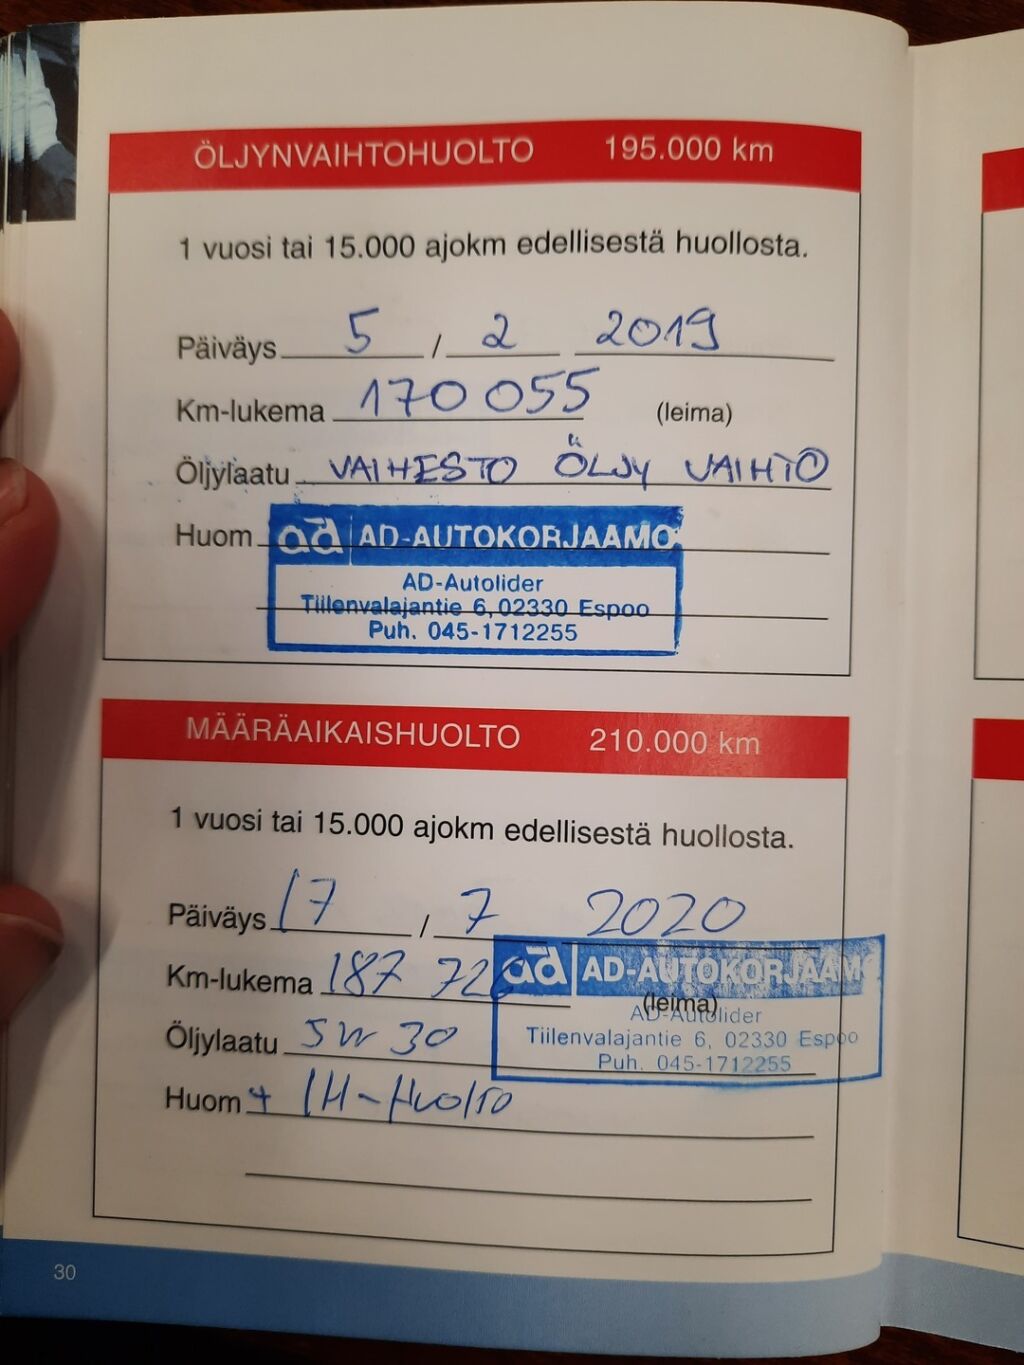 ÖLJYNVAIHTOHUOLTO 195.000 km
1 vuosi tai 15.000 ajokm edellisestä huollosta.
Päiväys 5 / 2 2019
Km-lukema 170 055 (leima)
Öljylaatu VAIHESTO ÖLJY VAIHTO
Huom ad AD-AUTOKORJAAMO
AD-Autolider
Tiilenvalajantie 6, 02330 Espoo
Puh. 045-1712255
MÄÄRÄAIKAISHUOLTO 210.000 km
1 vuosi tai 15.000 ajokm edellisestä huollosta.
Päiväys 17 / 7 2020
Km-lukema 187 726 (leima)
ad AD-AUTOKORJAAMO
AD-Autolider
Tiilenvalajantie 6, 02330 Espoo
Puh. 045-1712255
Öljylaatu 5W 30
Huom + IH-Huolto
30